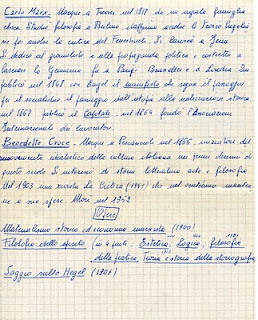 Carlo Marx. Nacque a Treviri nel 1818 da una agiata famiglia
ebrea. Studiò filosofia a Berlino
ne fu anche la critica del Feuerbach. Si laureò a Jena
Si dedicò al giornalismo e alla propaganda politica e costretto a
lasciare la Germania fu a Parigi Bruxelles e a Londra. In
pubblicò nel 1848 con Engel il manifesto che segna il passaggio
storica
nel 1867 pubblicò il Capitale. nel 1864 fondò l'Associazione
Internazionale dei lavoratori
Benedetto Croce. Nacque a Pescasseroli nel 1866, iniziatore del
movimento idealistico della cultura italiana nei primi decenni di
questo secolo si interessò di storia letteratura arte e filosofia
Nel 1903 una rivista La Critica che
Morì nel 1952
Opere
Materialismo storico ed economia marxista (1900)
Filosofia dello spirito (in 4 parti. Estetica, Logica, filosofia
della pratica, Teoria e storia della storiografia
Saggio sullo Hegel